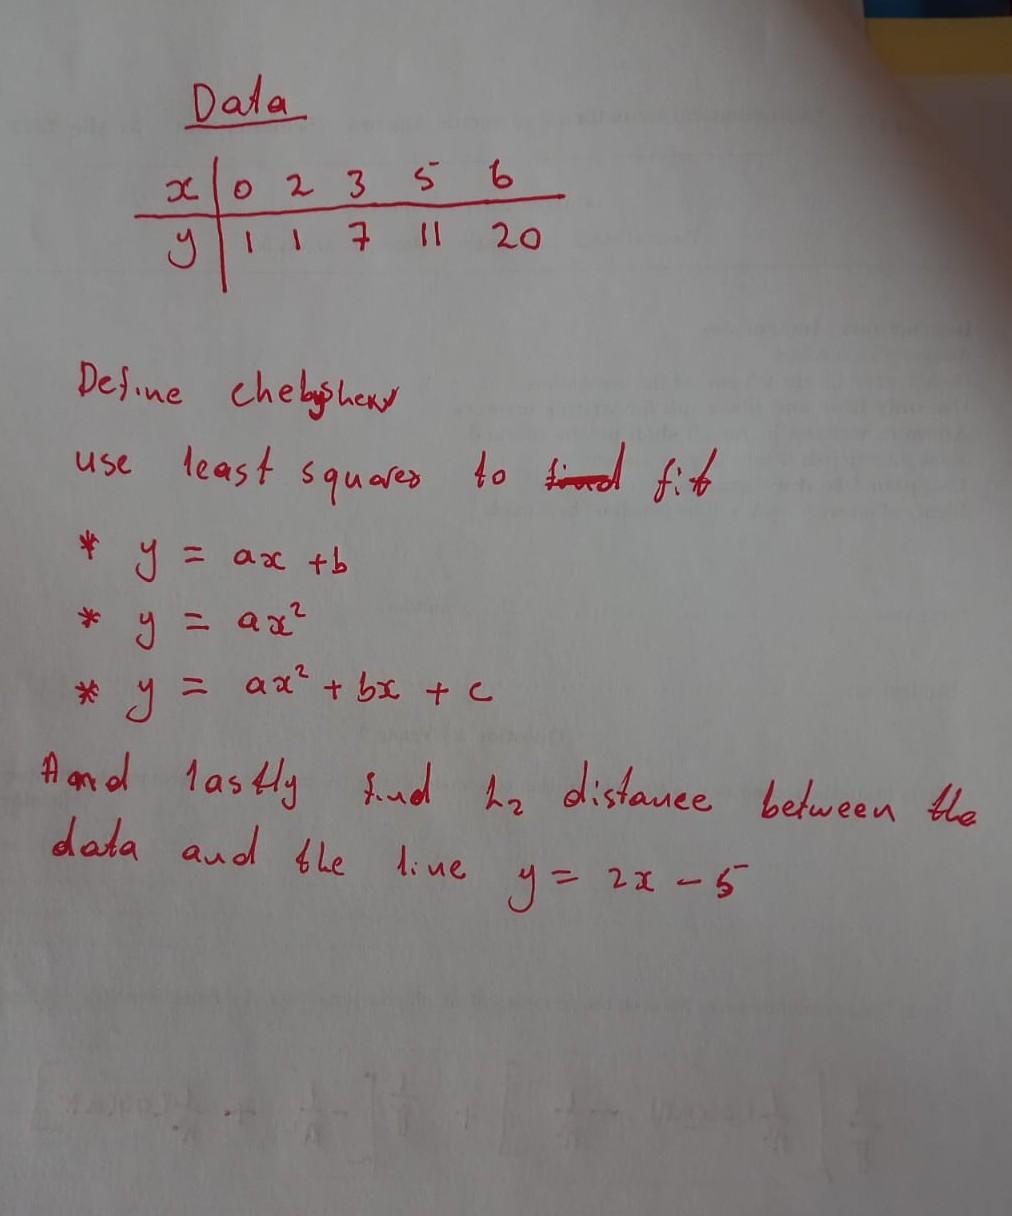 Data
x | 0 2 3 5 6
y | 1 1 7 11 20
Define chebyshev
use least squares to find fit
* y = ax + b
* y = ax²
* y = ax² + bx + c
And lastly find L₂ distance between the
data and the line y = 2x - 5